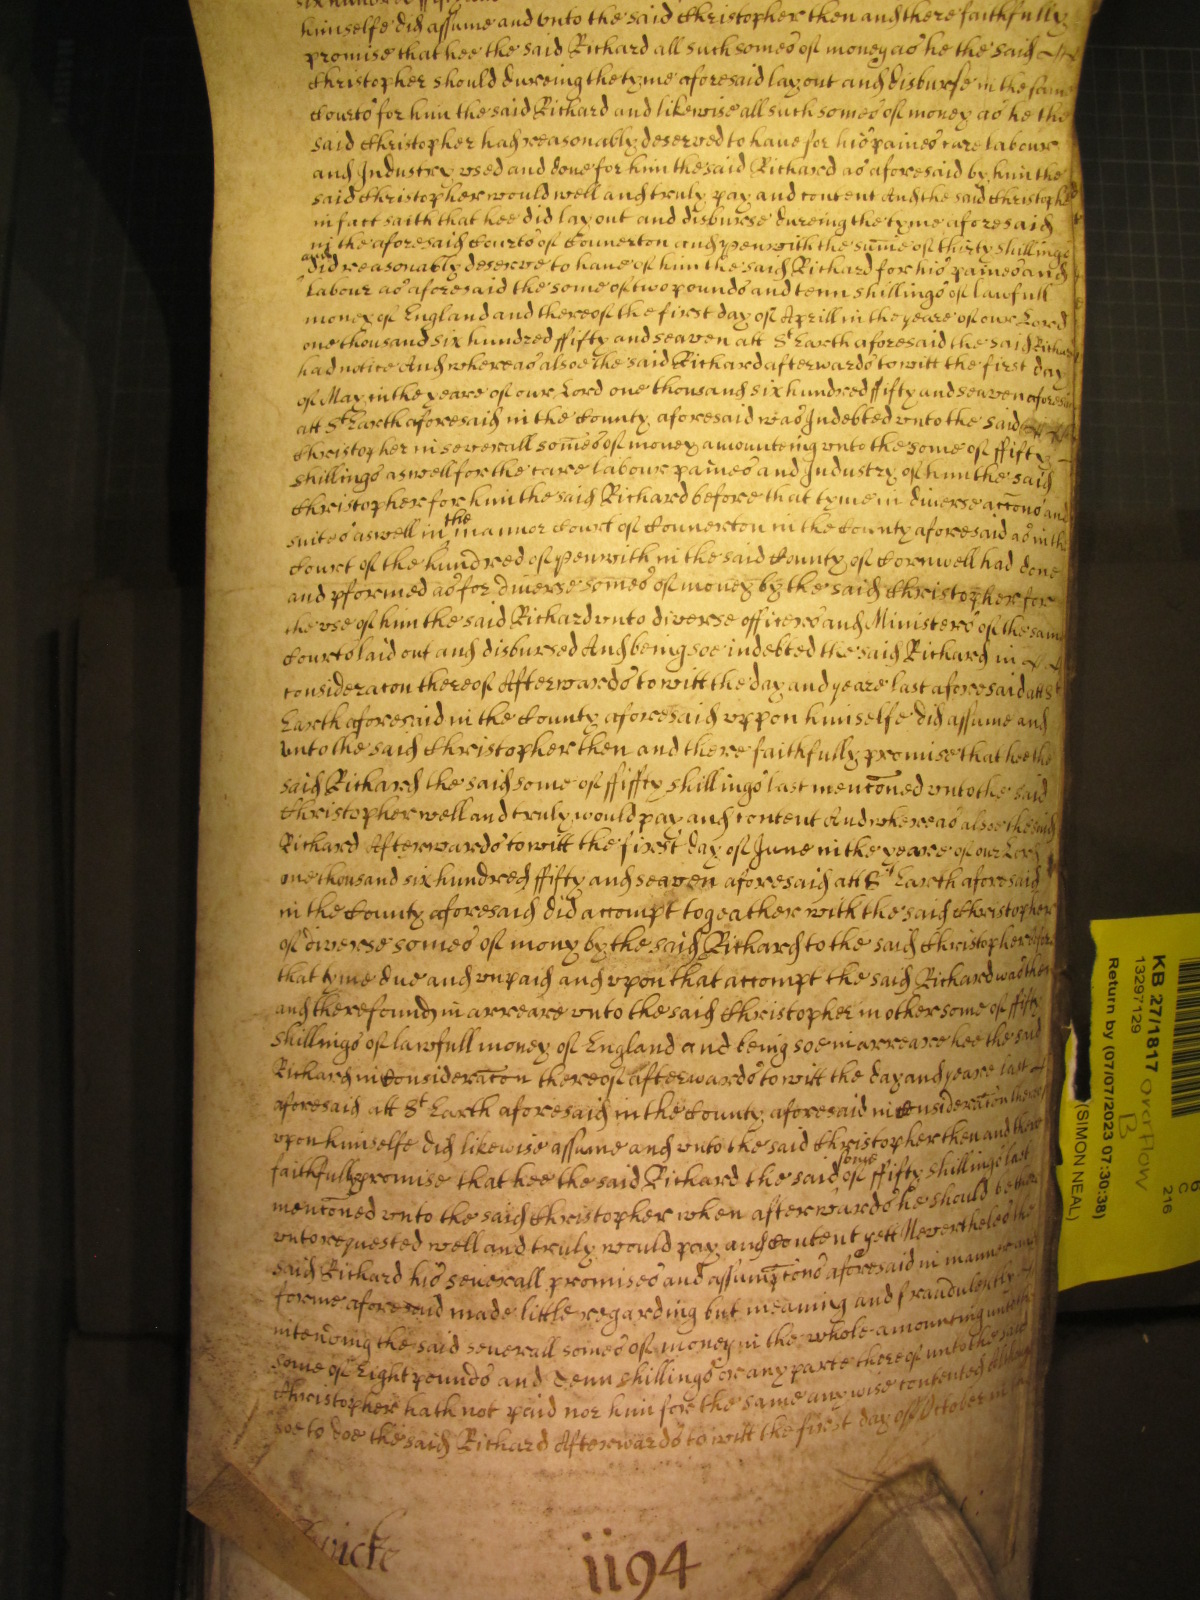 six hundred
himselfe did assume and vnto the said Christopher then and there faithfully
promise that hee the said Richard all such somes of money as he the said
Christopher should dureing the tyme aforesaid lay out and disburse in the same
Courts for him the said Richard and likewise all such somes of money as he the
said Christopher had reasonably deserved to haue for his paines care labour
and Industry vsed and done for him the said Richard as aforesaid by him the
said Christopher would well and truly pay and content And the said Christopher
in fact saith that hee did lay out and disburse dureing the tyme aforesaid
in the aforesaid Courts of Connerton and Penwith the sume of thirty shillings
and did reasonably deserve to haue of him the said Richard for his paines and
labour as aforesaid the some of two pounds and tenn shillings of lawfull
money of England and thereof the first day of Aprill in the yeare of our Lord
one thousand six hundred ffifty and seaven att St Earth aforesaid the said Richard
had notice And whereas alsoe the said Richard afterwards to witt the first day
of May in the yeare of our Lord one thousand six hundred ffifty and seaven aforesaid
att St Earth aforesaid in the County aforesaid was Indebted vnto the said
Christopher in severall somes of money amounteing vnto the some of ffifty
shillings aswell for the care labour paines and Industry of him the said
Christopher for him the said Richard before that tyme in diverse accons and
suites aswell in the mannor Court of Connerton in the County aforesaid as in the
Court of the hundred of Penwith in the said County of Cornwell had done
and pformed as for diverse somes of money by the said Christopher for
the vse of him the said Richard vnto diverse officers and Ministers of the same
Courts laid out and disbursed And being soe indebted the said Richard in
consideracon thereof Afterwards to witt the day and yeare last aforesaid att St
Earth aforesaid in the County aforesaid vppon himselfe did assume and
vnto the said Christopher then and there faithfully promise that hee the
said Richard the said some of ffiffty shillings last menconed vnto the said
Christopher well and truly would pay and content And whereas alsoe the said
Richard Afterwards to witt the first day of June in the yeare of our Lord
one thousand six hundred ffifty and seaven aforesaid att St Earth aforesaid
in the County aforesaid did accompt togeather with the said Christopher
of diverse somes of mony by the said Richard to the said Christopher before
that tyme due and vnpaid and vpon that accompt the said Richard was then
and there found in arreare vnto the said Christopher in other some of ffifty
shillings of lawfull money of England and being soe in arreare hee the said
Richard in Consideracon thereof afterwards to witt the day and yeare last
aforesaid att St Earth aforesaid in the County aforesaid in consideracon thereof
vpon himselfe did likewise assume and vnto the said Christopher then and there
faithfully promise that hee the said Richard the said some of ffifty shillings last
menconed vnto the said Christopher when afterwards he should be there
vnto requested well and truly would pay and Content yett Nevertheles the
said Richard his severall promises and assumpcons aforesaid in manner and
forme aforesaid made little regarding but meaning and fraudulently
intending the said severall somes of money in the whole amounting unto the
some of Eight pounds and Tenn shillings or any parte thereof unto the said
Christopher hath not paid nor him for the same any wise contented
soe to doe the said Richard Afterwards to witt the first day of October in
1194
KB 27/1817 overflow
13297129 B
Return by (07/07/2023 07:30:38)
(SIMON NEAL)
C
216